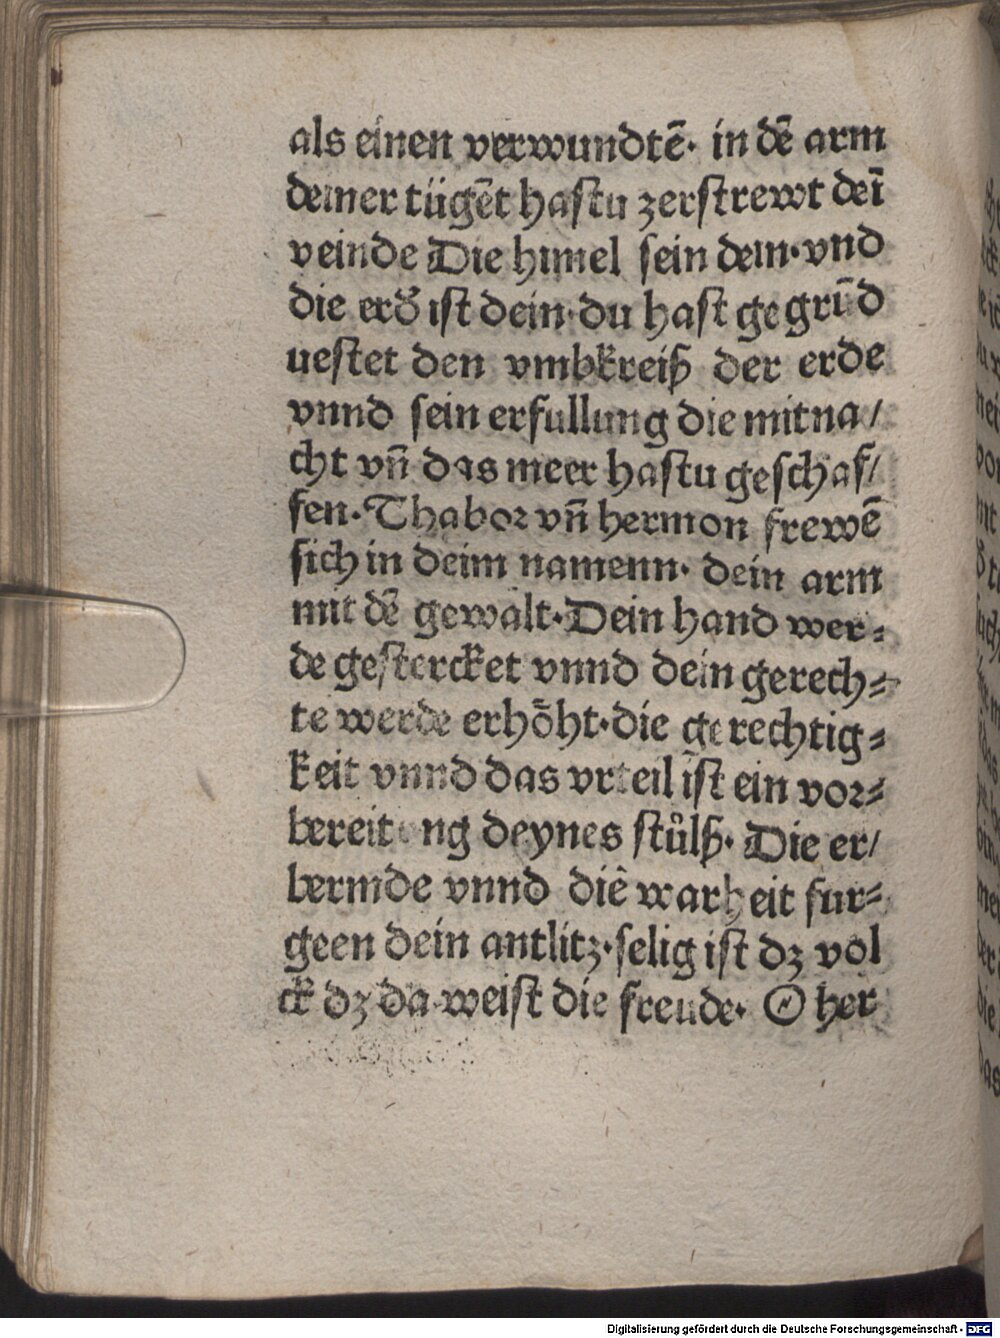 als einen verwundtē· in dē arm
deiner tügēt hastu zerstrewt deī
veinde Die himel sein dein·vnd
die erd̕ ist dein·du hast gegrūd
uestet den vmbkreiß der erde
vnnd sein erfullung die mitna/
cht vn̄ das meer hastu geschaf/
fen·Thabor vn̄ hermon frewē
sich in deim namenn· dein arm
mit dē gewalt·Dein hand wer⸗
de gestercket vnnd dein gerech⸗
te werde erhōht·die gerechtig⸗
keit vnnd das vrteil ist ein vor⸗
bereitung deynes stůlß· Die er/
bermde vnnd die warheit fur⸗
geen dein antlitz·selig ist dz vol
ck dz da weist die freude· O her
Digitalisierung gefördert durch die Deutsche Forschungsgemeinschaft - DFG